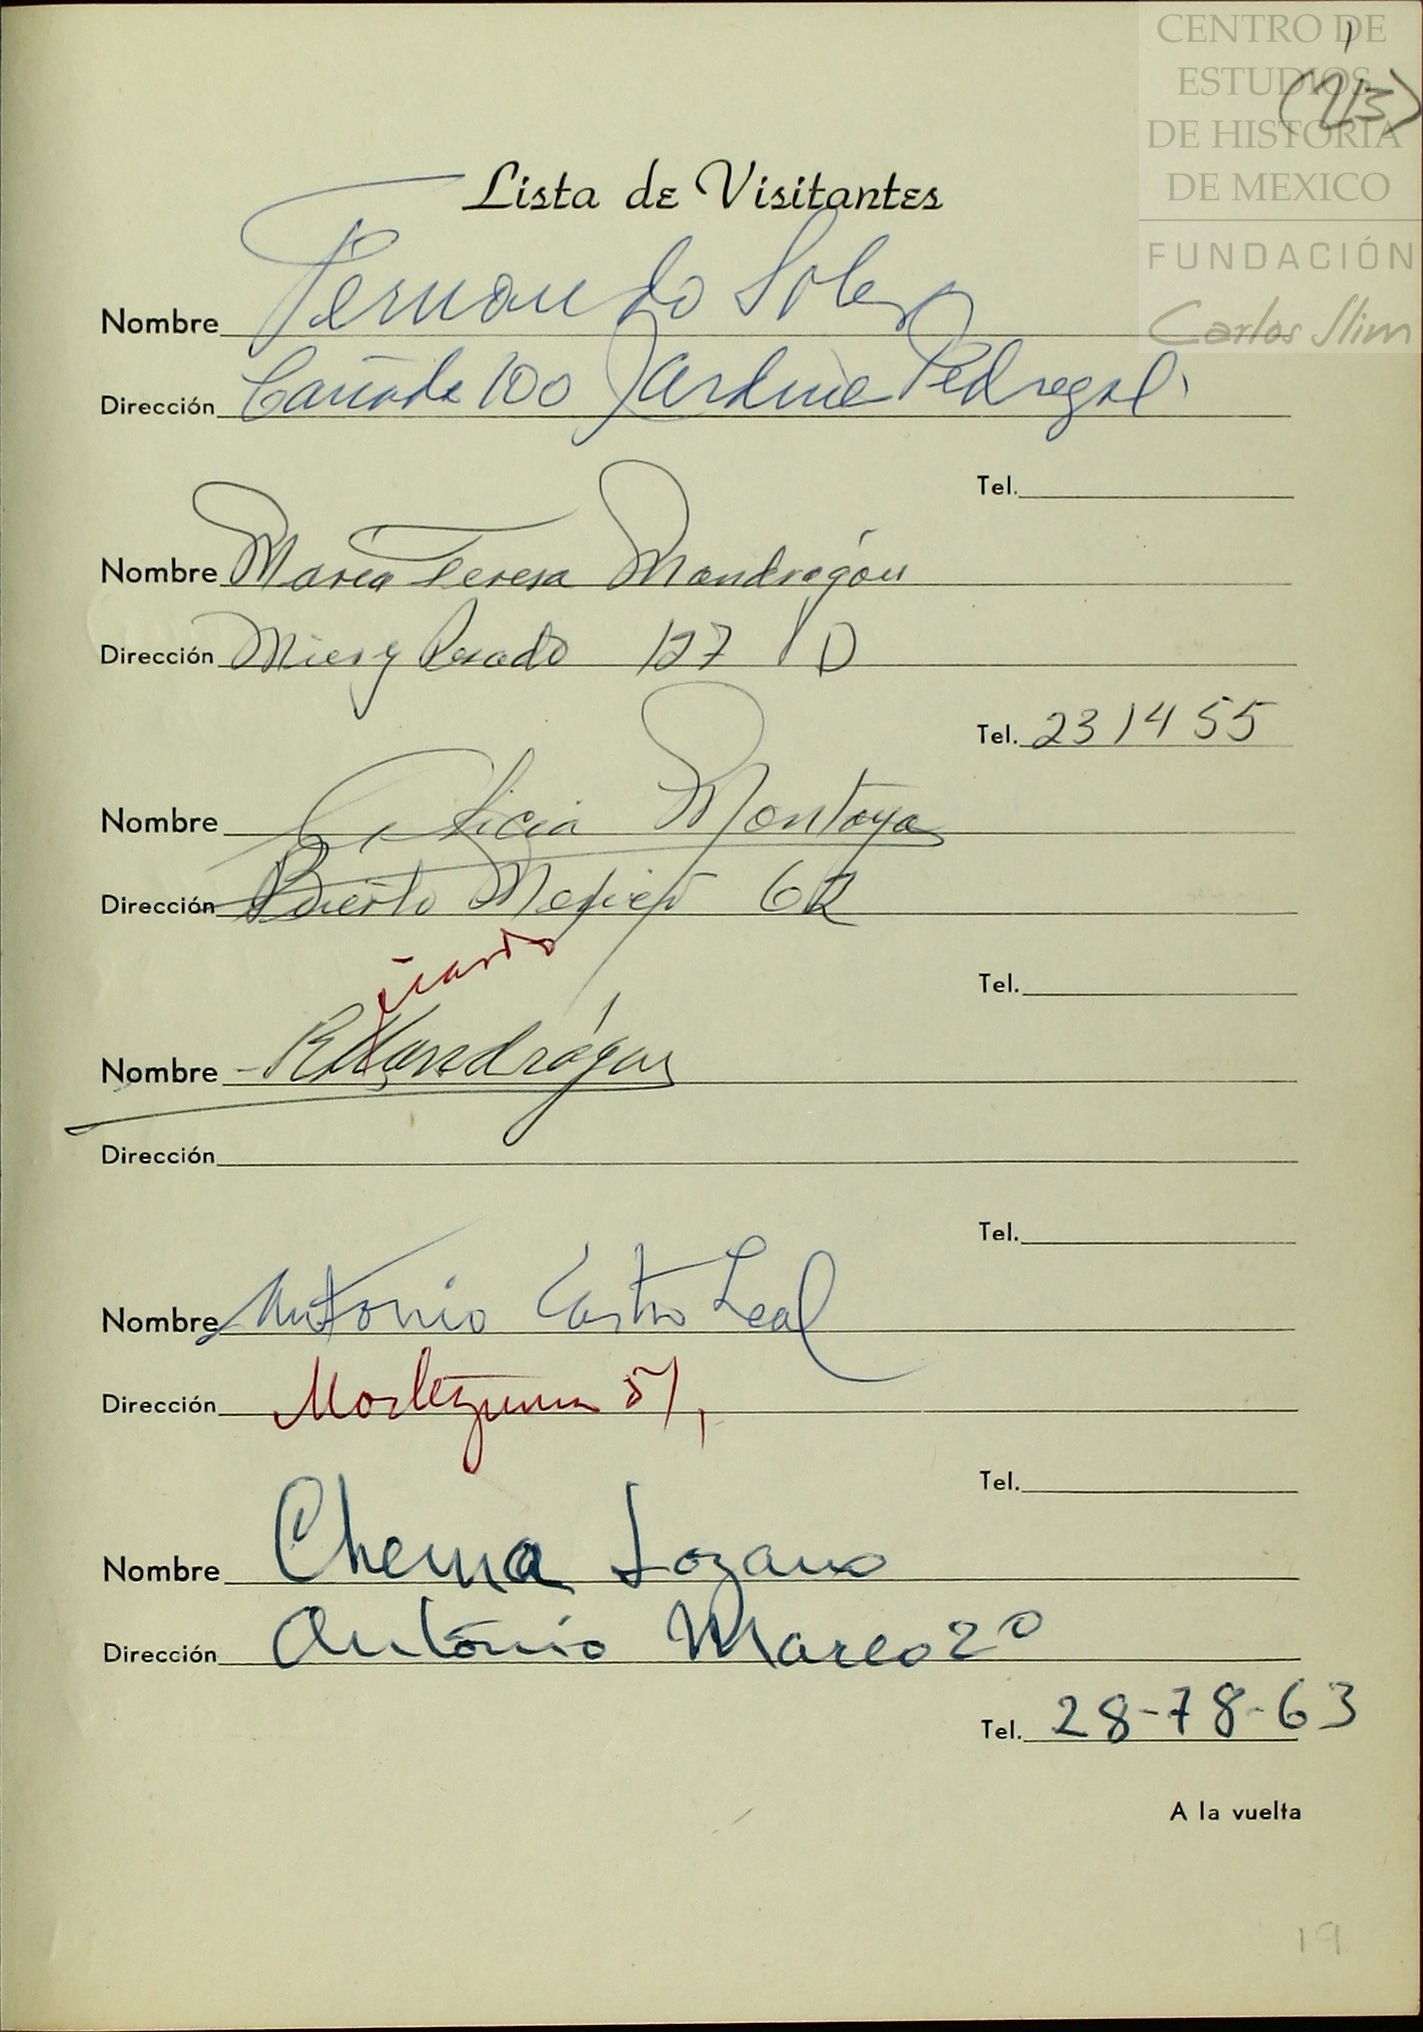 CENTRO DE
ESTUDIOS
DE HISTORIA
DE MEXICO
FUNDACIÓN
Carlos Slim
1
(1/3)
Lista de Visitantes
Nombre Fernando Soler
Dirección Cañada 100 Jardines Pedregal
Tel.
Nombre María Teresa Mondragón
Dirección Mier y Pesado 127 D
Tel. 231455
Nombre Alicia Montoya
Dirección Puerto Mexico 62
Tel.
icardo
Nombre R Mondragón
Dirección
Tel.
Nombre Antonio Castro Leal
Dirección Moctezuma 51,
Tel.
Nombre Chema Lozano
Dirección Antonio Marco 20
Tel. 28-78-63
A la vuelta
19